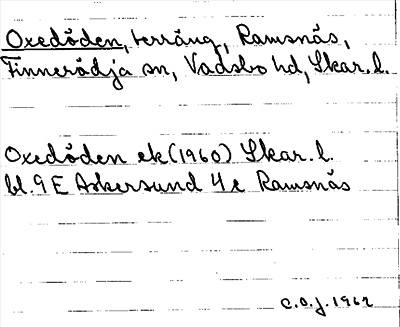 Oxedöden, terräng, Ramsnäs,
Finnerödja sn, Vadsbo hd, Skar. l.
Oxedöden ek (1960) Skar. l.
bl. 9 E Askersund 4 e Ramsnäs
C.O.J. 1962